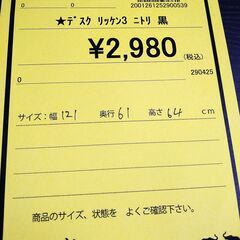 0
0
2001261252900539
★ﾃﾞｽｸ ﾘｯｹﾝ3 ﾆﾄﾘ 黒
¥2,980
(税込)
0
290425
サイズ:幅 121 奥行 61 高さ 64 cm
商品のサイズ、状態を よくご確認下さい。